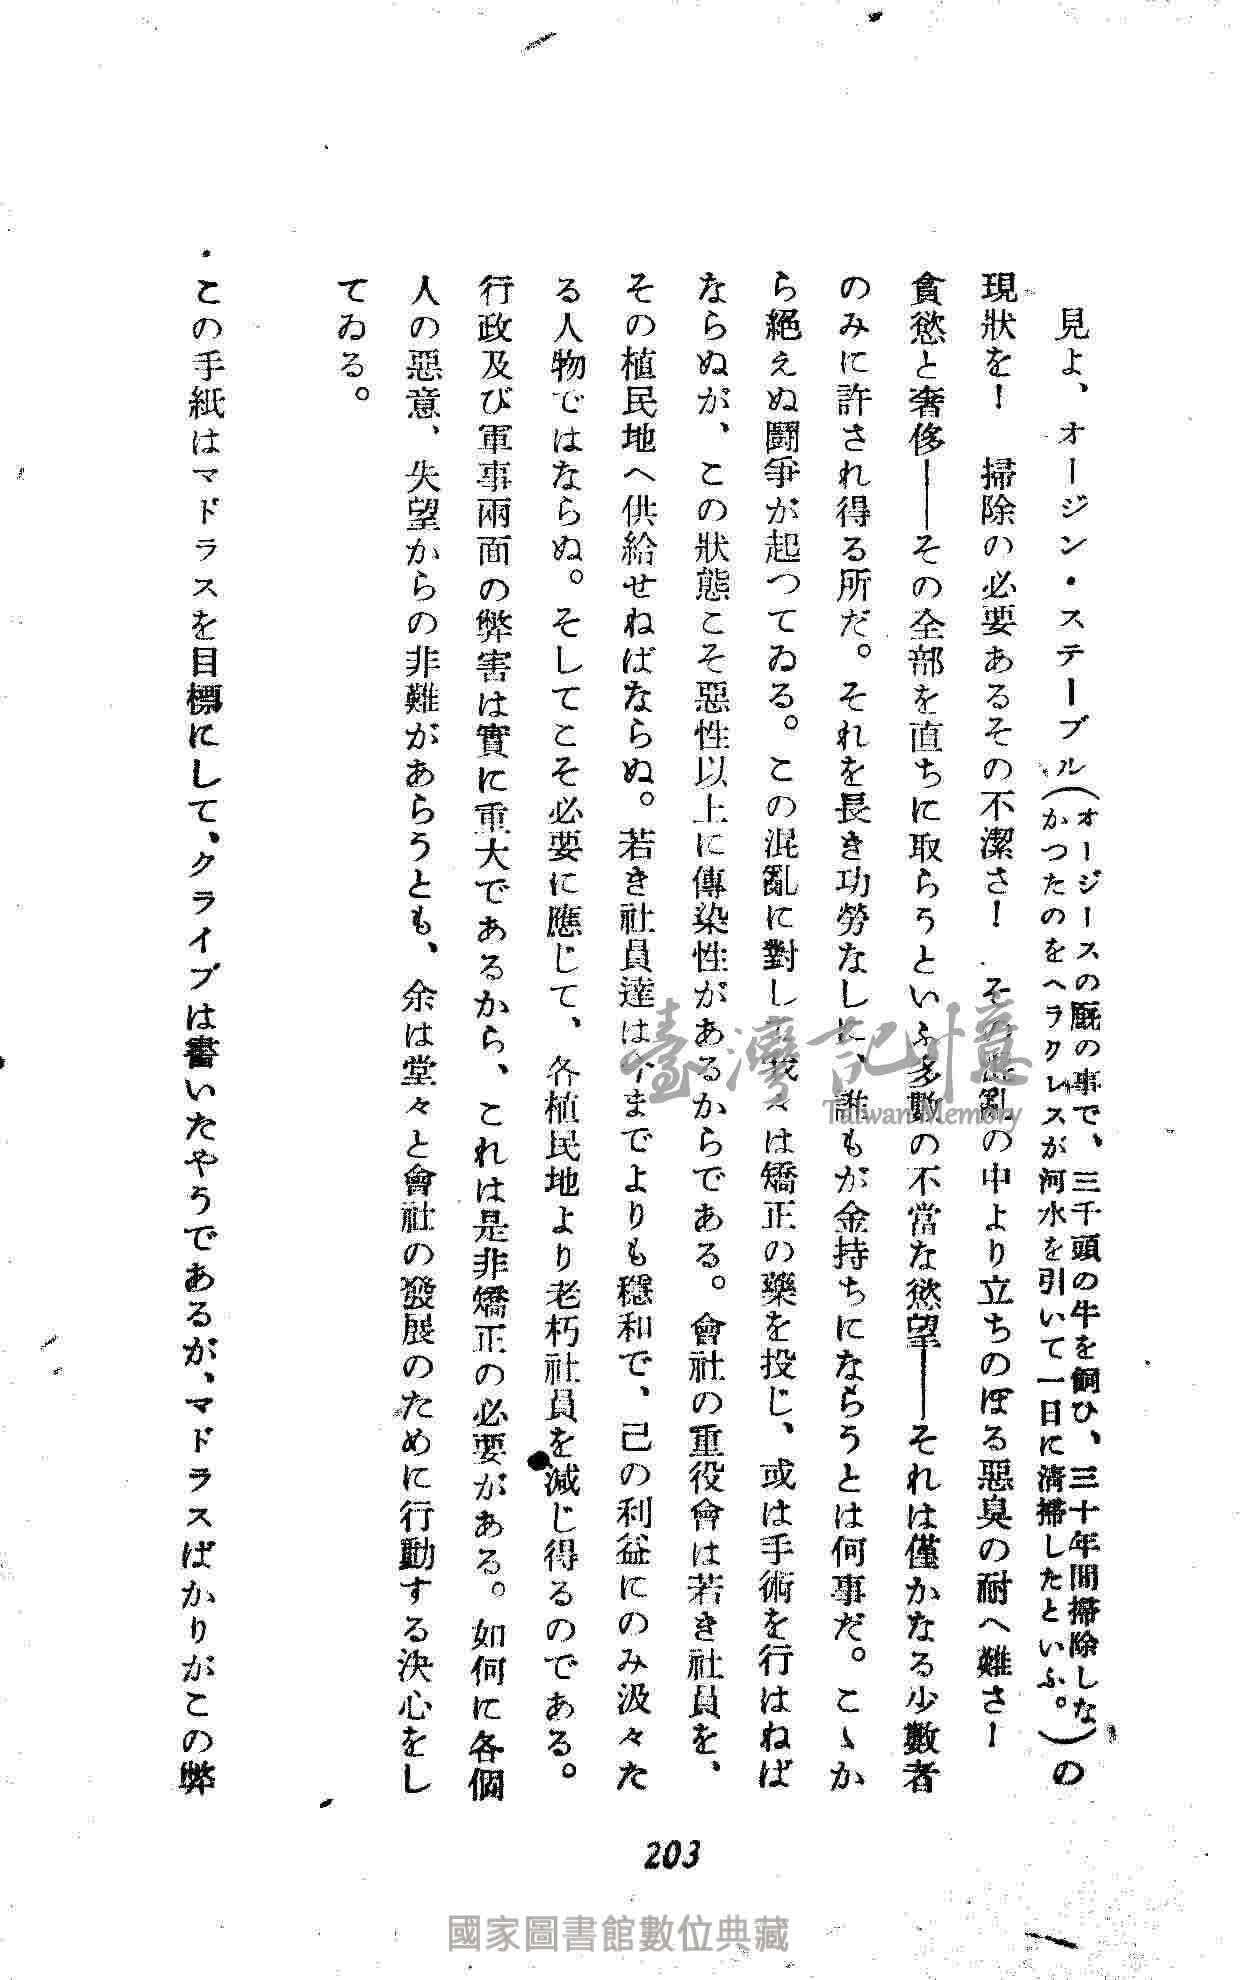 見よ、オージン・ステーブル(オージースの厩の事で、三千頭の牛を飼ひ、三十年間掃除しな
かつたのをヘラクレスが河水を引いて一日に清掃したといふ。)の
現狀を! 掃除の必要あるその不潔さ! その混亂の中より立ちのぼる惡臭の耐へ難さー
貪慾と奢侈――その全部を直ちに取らうといふ多數の不當な慾望――それは僅かなる少數者
のみに許され得る所だ。それを長き功勞なしに、誰もが金持ちにならうとは何事だ。こゝか
ら絕えぬ鬪爭が起つてゐる。この混亂に對して我々は矯正の藥を投じ、或は手術を行はねば
ならぬが、この狀態こそ惡性以上に傳染性があるからである。會社の重役會は若き社員を、
その植民地へ供給せねばならぬ。若き社員達は今までよりも穩和で、己の利益にのみ汲々た
る人物ではならぬ。そしてこそ必要に應じて、各植民地より老朽社員を減じ得るのである。
行政及び軍事兩面の弊害は實に重大であるから、これは是非矯正の必要がある。如何に各個
人の惡意、失望からの非難があらうとも、余は堂々と會社の發展のために行動する決心をし
てゐる。
・この手紙はマドラスを目標にして、クライブは書いたやうであるが、マドラスばかりがこの弊
203
臺灣記憶
Taiwan Memory
國家圖書館數位典藏